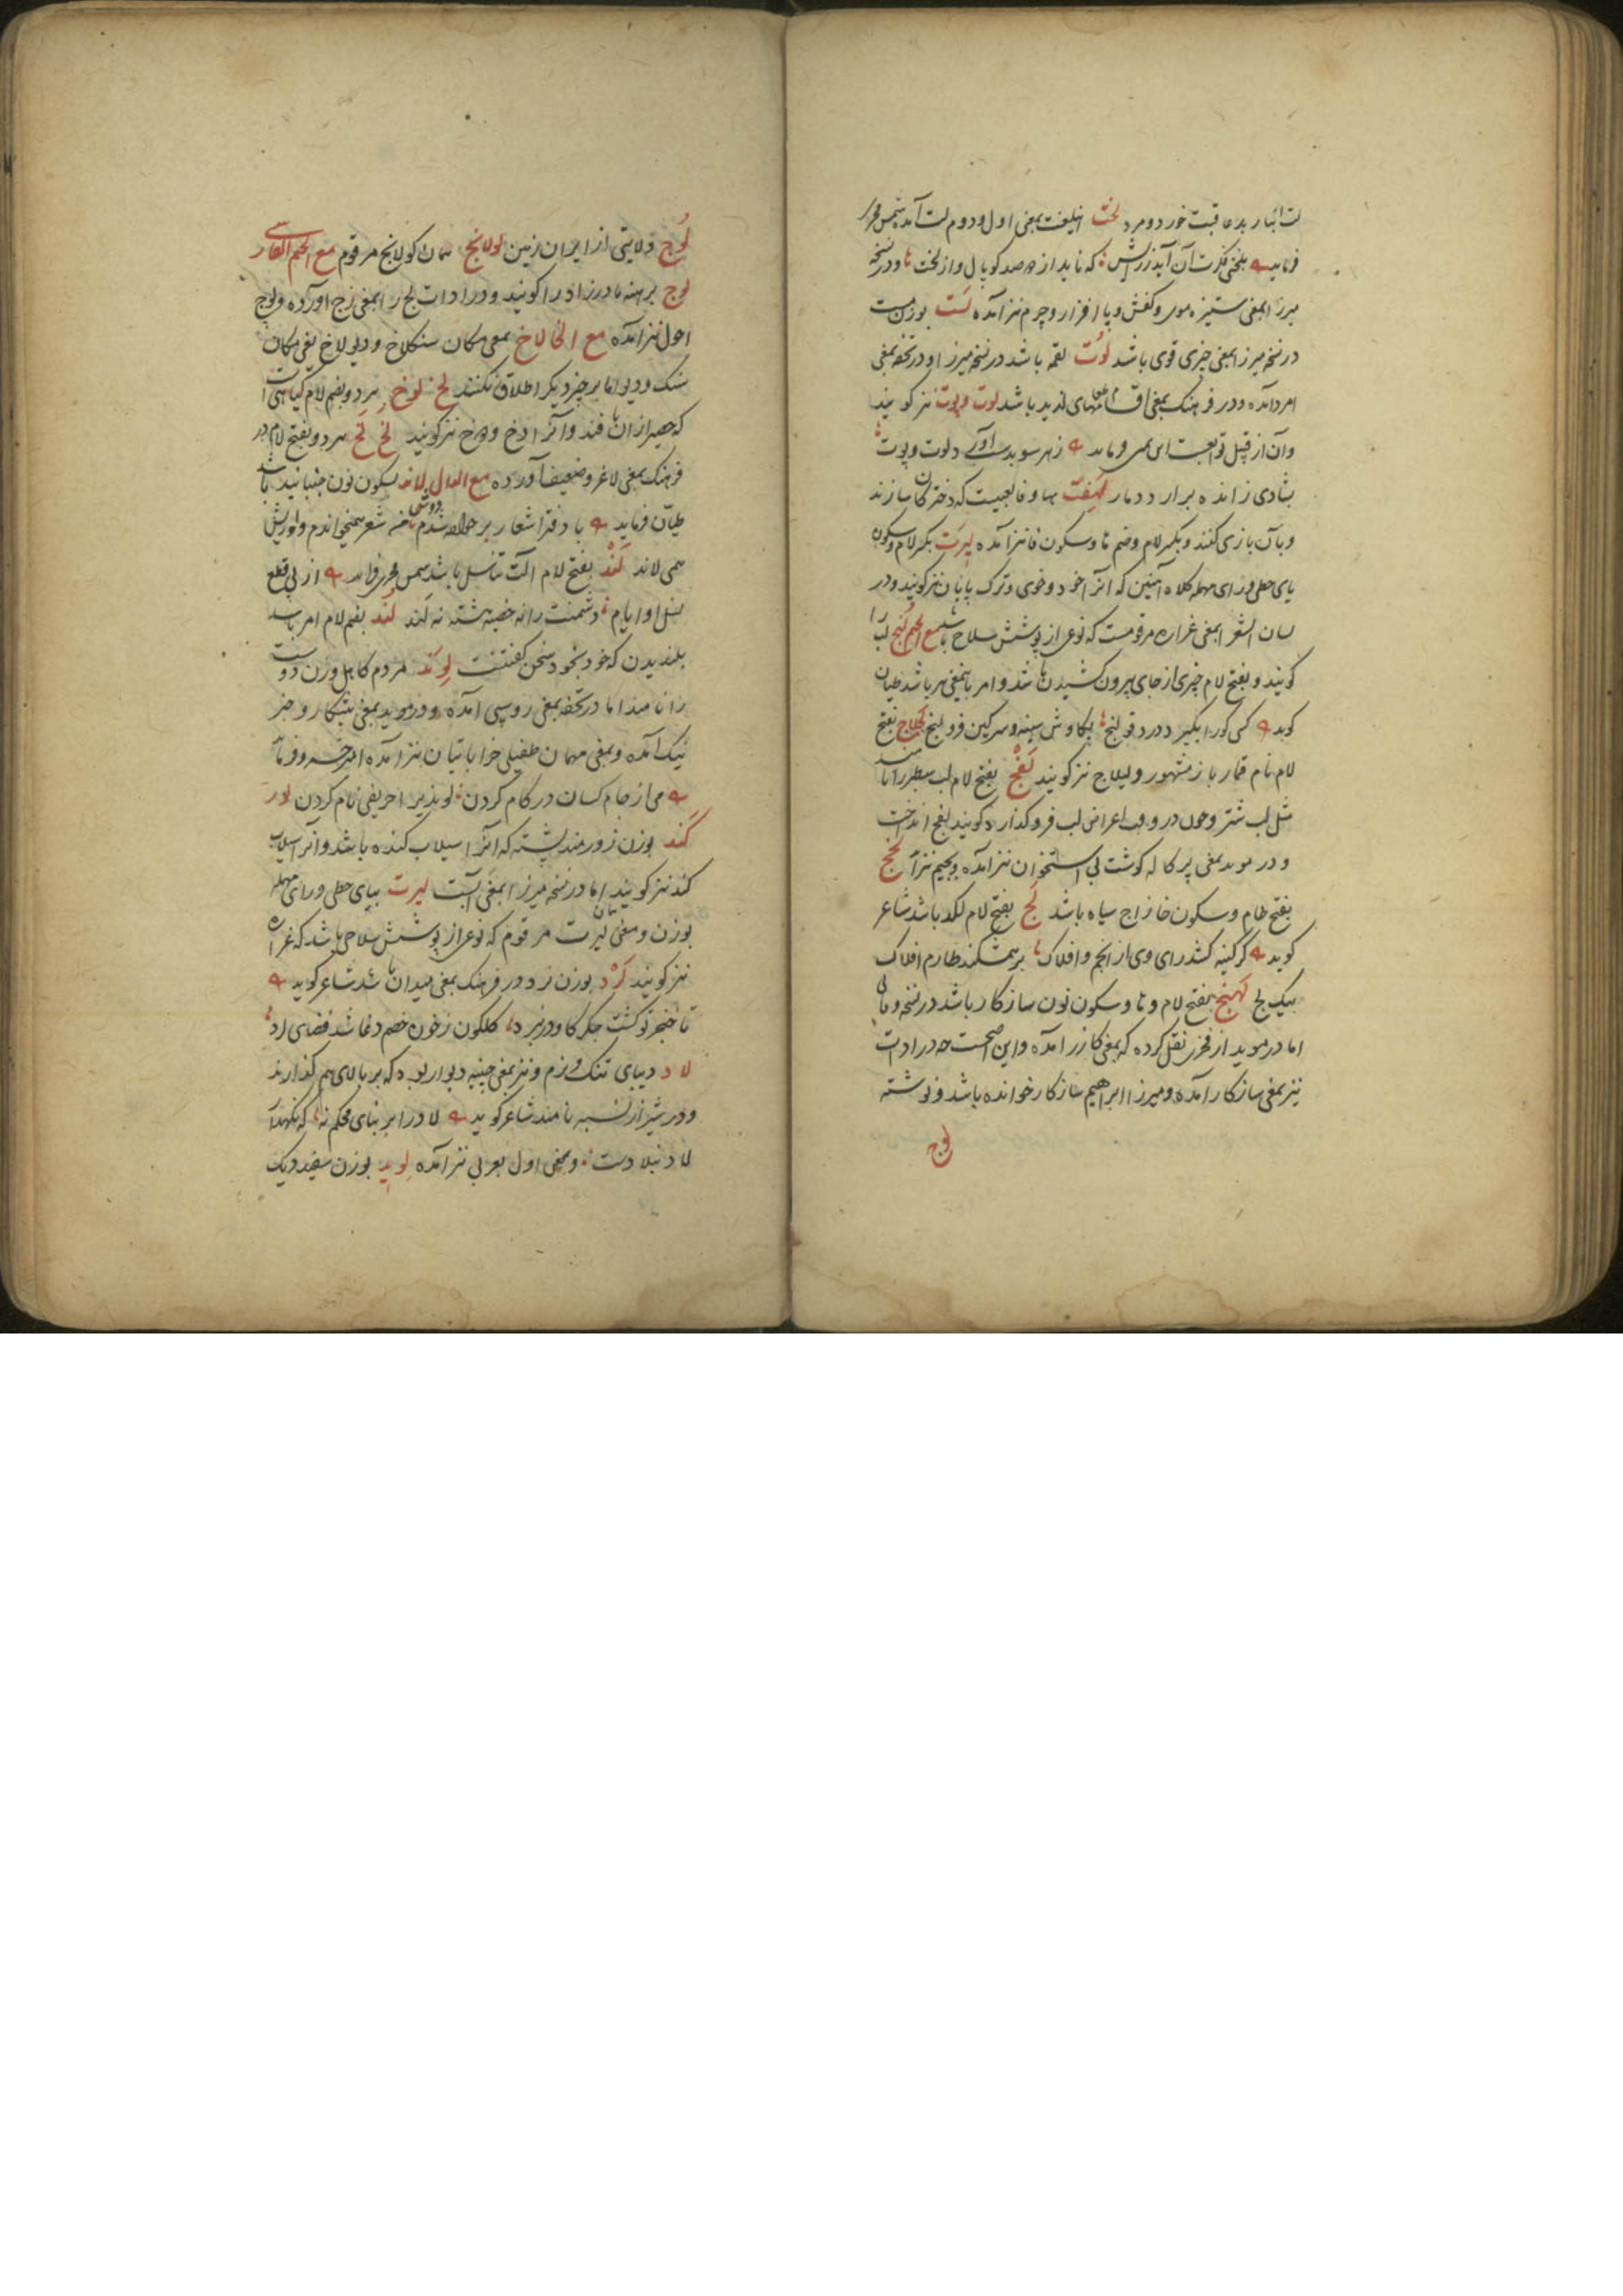 لت انبار بد عاقبت خورد و مرد لخت اینلغت بمعنی اول و دوم لت آمده شمس فخری
فرماید بلختی کزت آن آید زرایش که ناید از دو صد کوپال و از لخت و در نسخه
میرزا بمعنی ستیزه موی و کفش و پا افزار و چرم نیز آمده لست بوزن مست
در نسخه میرزا بمعنی چیزی قوی باشد لوت لقمه باشد در نسخه میرزا و در تحفه بمعنی
امرد آمده و در فرهنگ بمعنی اقسام طعامهای لذید باشد لوت و پوت نیز کویند
وآن از قبیل توابعست زهر سو بدست آورد لوت و پوت
بشادی زاننده برار لهفت بها و فا لعبتیست که دختران سازند
و بآن بازی کنند و بکسر لام و ضم ها و سکون فا نیز آمده لیرت بکسر لام و سکون
یای حطی و رای مهمله کلاه آهنین که آنرا خود و خوی و ترک یابان نیز کویند و در
لسان الشعرا بمعنی غراره مرقومست که نوعی از پوشش سلاح باشد مع الجیم لنج لب را
کویند و بفتح لام چیزی از جای بیرون کشیدن باشد و امر باینمعنی نیز باشد طیان
کوید کسی کورا بکیرد درد قولنج بکاوش سینه و سرکین فرو لنج لجلاج بفتح
لام نام قمار باز مشهور و لیلاج نیز کویند لفج بفتح لام لب سطبر را نامند
مثل لب شتر و چون در وقت اعراض لب فرو کذارد کویند لفج انداخت
و در موید بمعنی پرکاله کوشت بی استخوان نیز آمده و بجیم نیز
بفتح لام و سکون خا زاج سیاه باشد لج بفتح لام لکد باشد شاعر
کوید کر کینه کشد رای وی از انجم و افلاک بر هم شکند طارم افلاک
بیک لج لهنج بفتح لام و ها و سکون نون سازکار باشد در نسخه وفائی
اما در موید از فخری نقل کرده که بمعنی کازر آمده و این اصحست چه در ادات
نیز بمعنی سازکار آمده و میرزا ابراهیم سازکار خوانده باشد و نوشته
لوج
لوج ولایتی از ایران زمین لولانج همان کولانج مرقوم مع الجیم الفارسی
لوج برهنه مادرزاد را کویند و در ادات لج را بمعنی زج آورده و لوج
احول نیز آمده مع الخا لاخ بمعنی مکان سنکلاخ و دیولاخ یعنی مکان
سنک و دیو اما بر چیز دیکر اطلاق نکنند لخ لوخ هر دو بضم لام کیاهی است
که حصیر از آن بافند و آنرا دخ و رخ نیز کویند لخ هر دو بفتح لام در
فرهنک بمعنی لاغر و ضعیف آورده مع الدال لاند بسکون نون جنبانید باشد
طیان فرماید با دفتر اشعار بر خواجه شدم دوش من شعر همیخواندم و او ریش
همی لاند لند بفتح لام آلت تناسل باشد شمس فخری فرماید از پی قطع
نسل او ایام دشمنت را نه خصیه هشته نه لند لند بضم لام امر باشد
بلندیدن که خود بخود سخن کفتنست لوند مردم کاهل و زن دوست
را نامند اما در تحفه بمعنی روسپی آمده و در موید بمعنی پیشکار و خبر
نیک آمده و بمعنی مهمان طفیلی خراباتیان نیز آمده امیر خسرو فرماید
می از جام کسان در کام کردن لوند یر احریفی نام کردن لور
کند بوزن زورمند پشته که آنرا سیلاب کنده باشد و آنرا سیلاب
کند نیز کویند اما در نسخه میرزا بمعنی آبست لیرت بیای حطی و رای مهمله
بوزن و معنی لیرت مرقوم که نوعی از پوشش سلاحی باشد که غراره
نیز کویند لرد بوزن نرد در فرهنک بمعنی میدان باشد شاعر کوید
تا خنجر تو کشت جکرکاو در نبرد کلکون ز خون خصم دغا شد فضای لرد
لاد دیبای تنک و نرم و نیز بمعنی چینه دیوار بود که بر بالای هم کذارند
و در شیراز نسبه نامند شاعر کوید لاد را بر بنای محکم نه که نکهدار
لاد بنلادست و بمعنی اول بعربی نیز آمده لوید بوزن سفید دیک